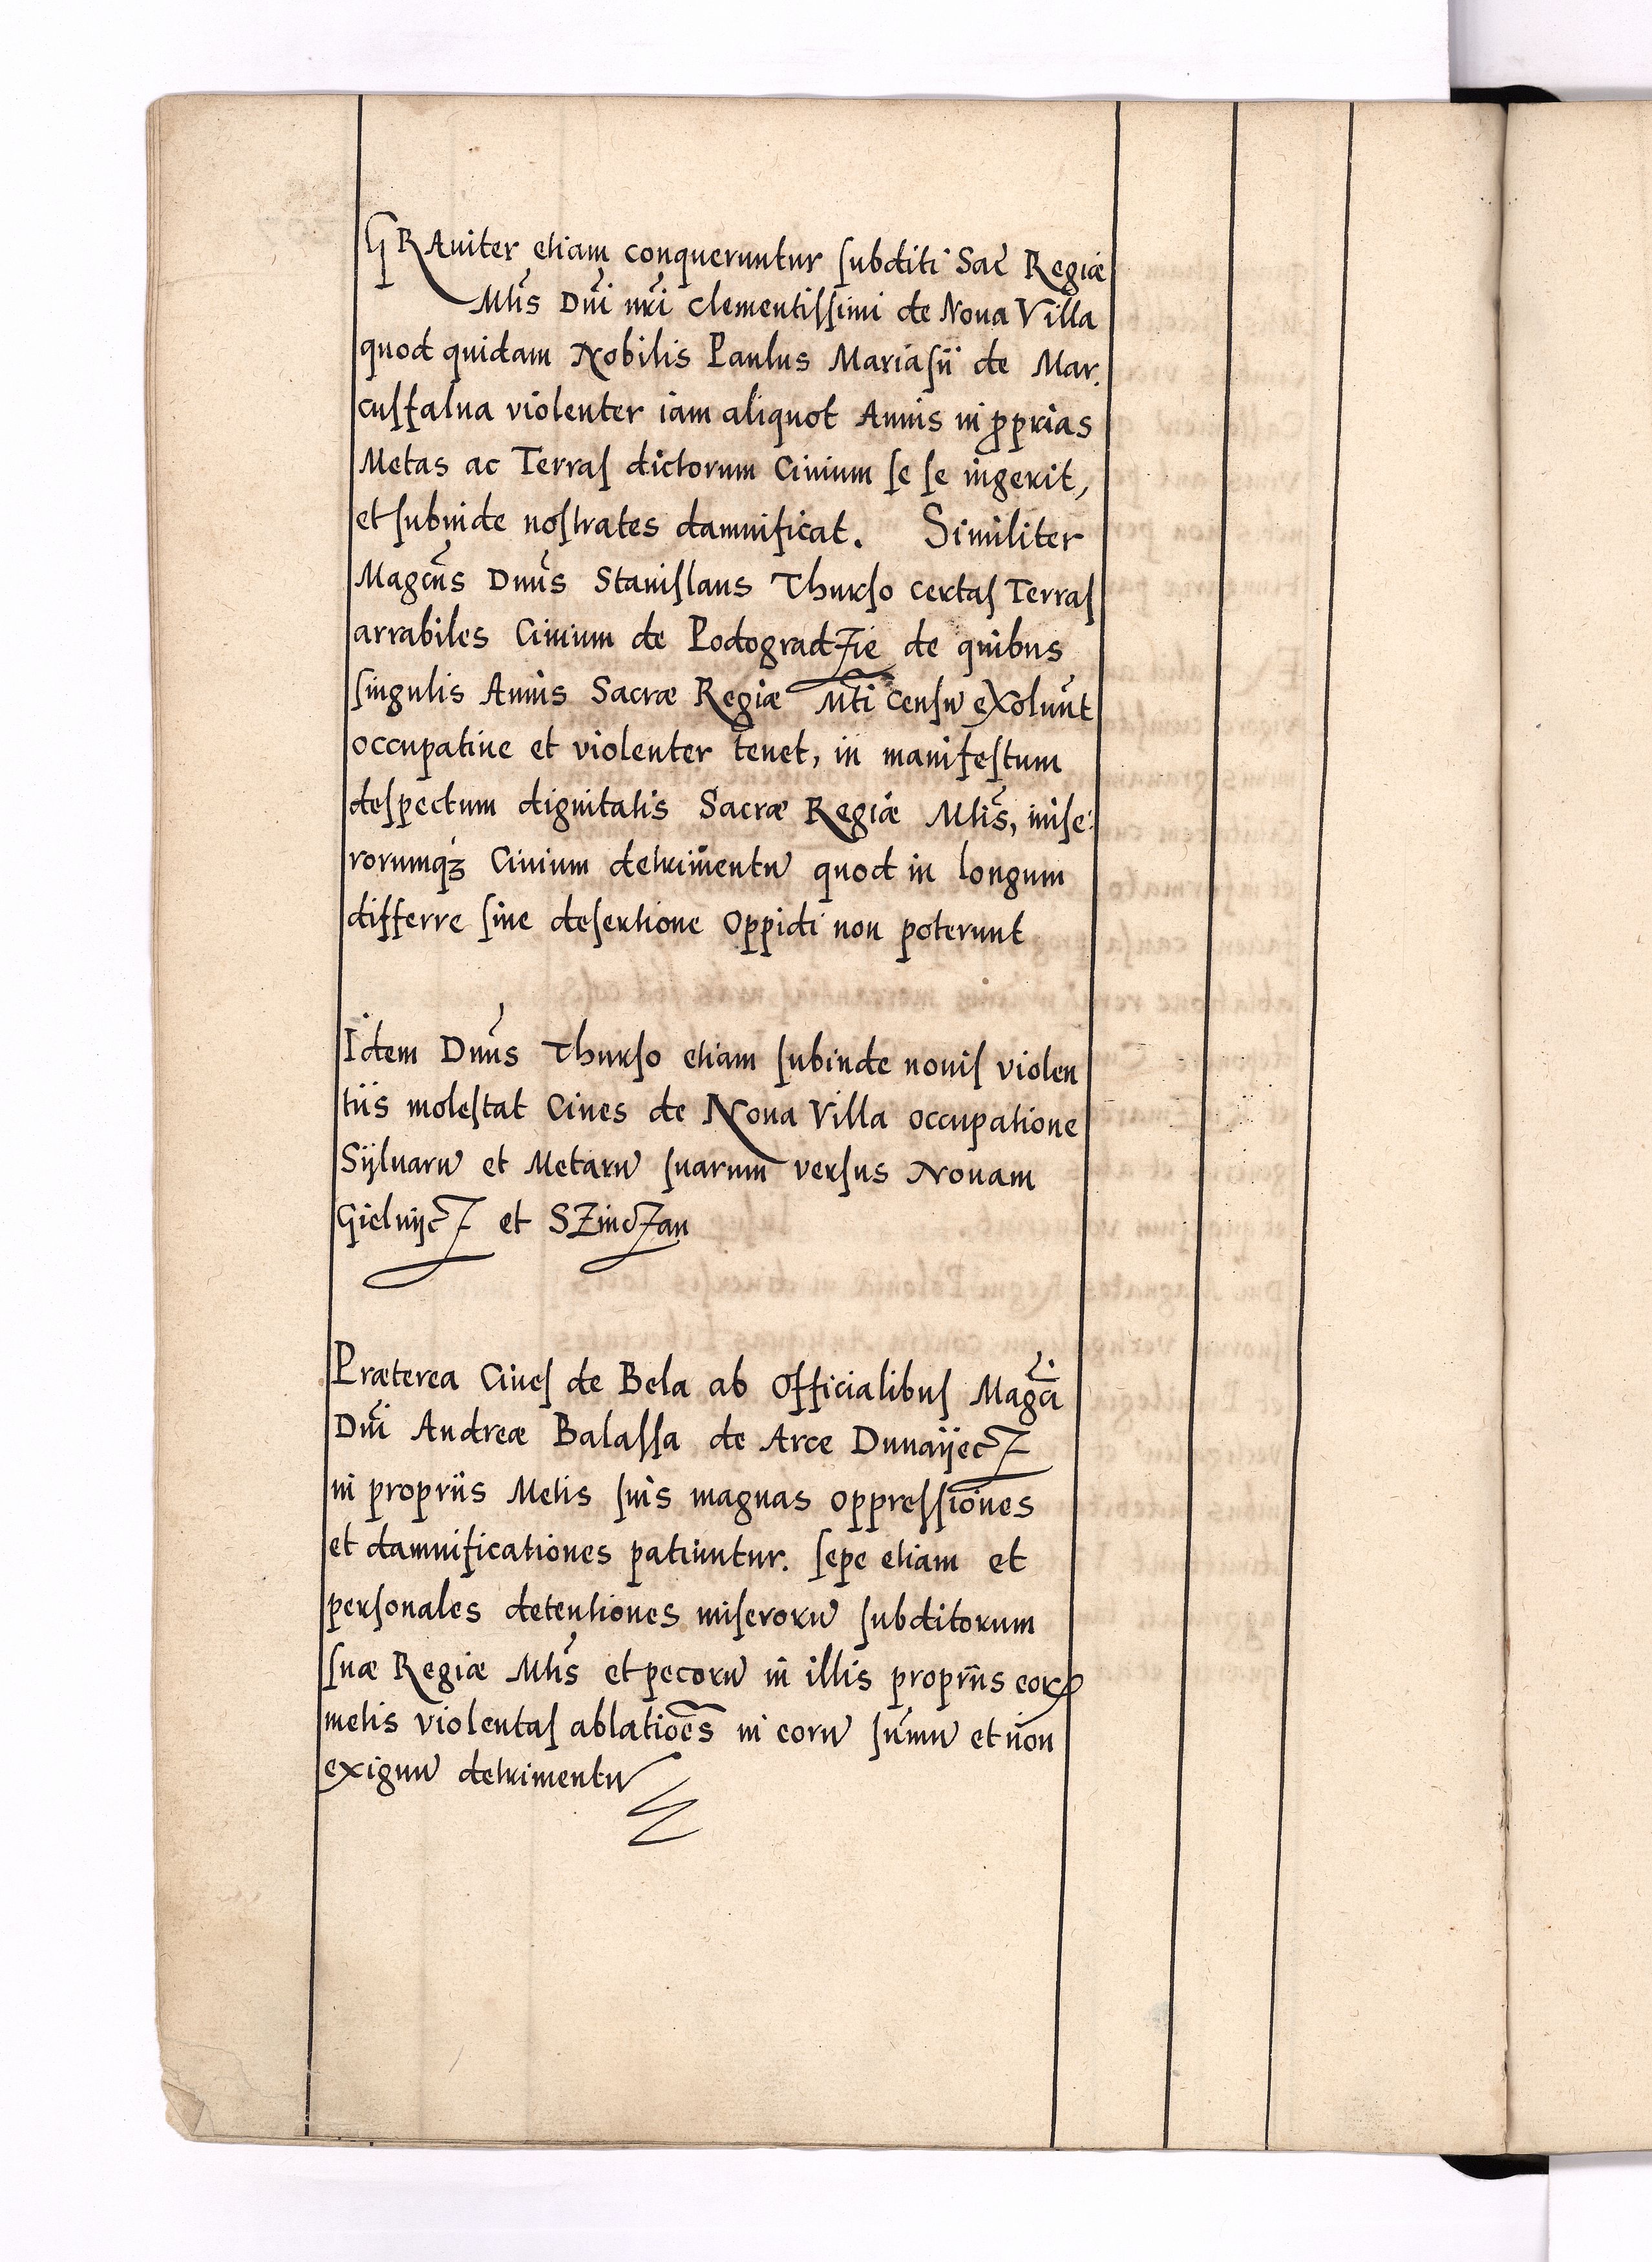 GRAuiter etiam conqueruntur subditi Sac Regiæ
Mtis Dni nri clementissimi de Noua Villa
quod quidam Nobilis Paulus Mariasii de Mar.
cusfalua violenter iam aliquot Annis in pprias
Metas ac Terras dictorum Ciuium se se ingerit,
et subinde nostrates damnificat. Similiter
Magcus Dnus Stanislaus Thurso certas Terras
arrabiles Ciuium de Podogradzie de quibus
singulis Annis Sacræ Regiæ Mti censu exolunt
occupatiue et violenter tenet, in manifestum
despectum dignitatis Sacræ Regiæ Mtis, mise:
rorumqz Ciuium detrimentu quod in longum
differre sine desertione Oppidi non poterunt
Idem Dnus Thurso etiam subinde nouis violen
tiis molestat Ciues de Noua Villa occupatione
Syluaru et Metaru suarum versus Nouam
Gielnycz et SZinczan
Præterea Ciues de Bela ab Officialibus Magci
Dni Andreæ Balassa de Arce Dunayecz
in propriis Metis suis magnas oppressiones
et damnificationes patiuntur. sepe etiam et
personales detentiones miseroru subditorum
suæ Regiæ Mtis et pecoru in illis propriis eorꝝ
metis violentas ablatioes in eoru sumu et non
exiguu detrimentu